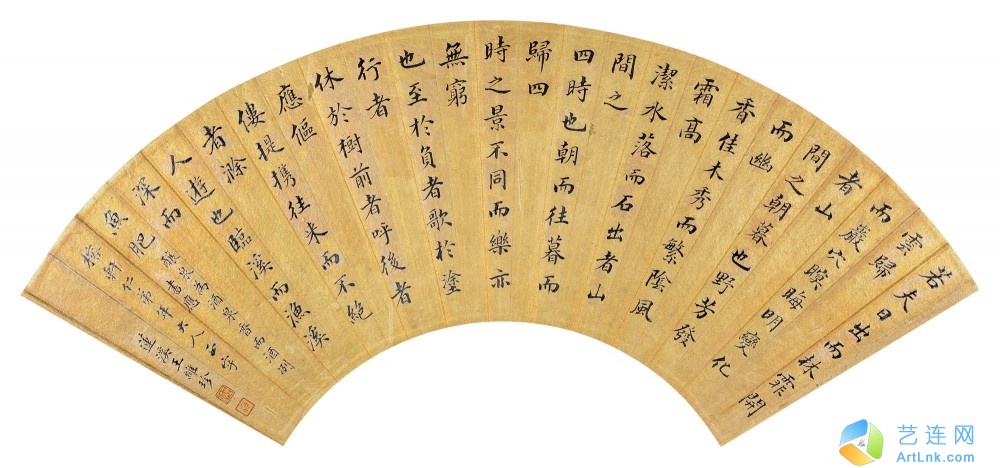 若夫日出而林霏開
雲歸
而巖穴暝晦明變化
者山
間之朝暮也野芳發
而幽
香佳木秀而繁陰風
霜高
潔水落而石出者山
間之
四時也朝而往暮而
歸四
時之景不同而樂亦
無窮
也至於負者歌於塗
行者
休於樹前者呼後者
應傴
僂提携往来而不絶
者滁
人遊也臨溪而漁溪
深而
魚肥
釀泉為酒泉香而酒洌
書應
軒仁弟年大人正字
蓮溪王維珍
艺连网
ArtLnk.com